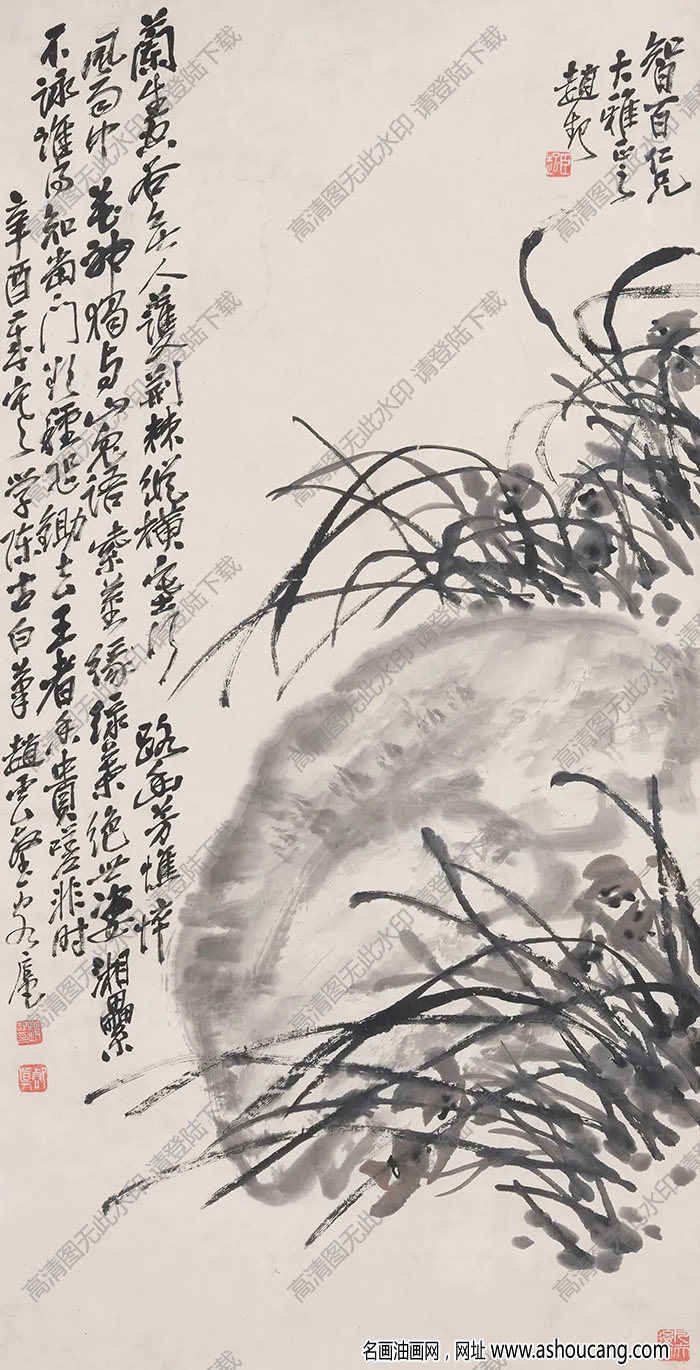 智百仁兄
大雅正之
趙起
蘭生空谷無人護荆棘縱橫塞行路幽芳憔悴
風雨中花神獨與山鬼語紫莖緣葉絕世姿湘纍
不詠誰得知當門欲種恐鋤去王者香貴嗟非時
辛酉 學陳古白筆趙雲壑
高清图无此水印 请登陆下载
名画油画网，网址 www.ashoucang.com